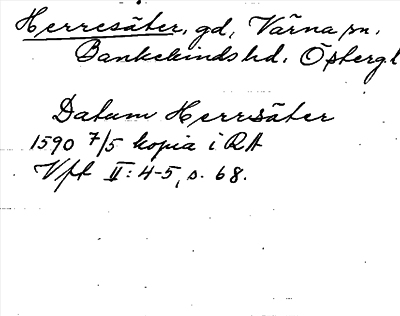 Herresäter, gd, Värna sn.
Bankekinds hd. Östergl
Datum Herrsäter
1590 7/5 kopia i RA
Vft II: 4-5, s. 68.